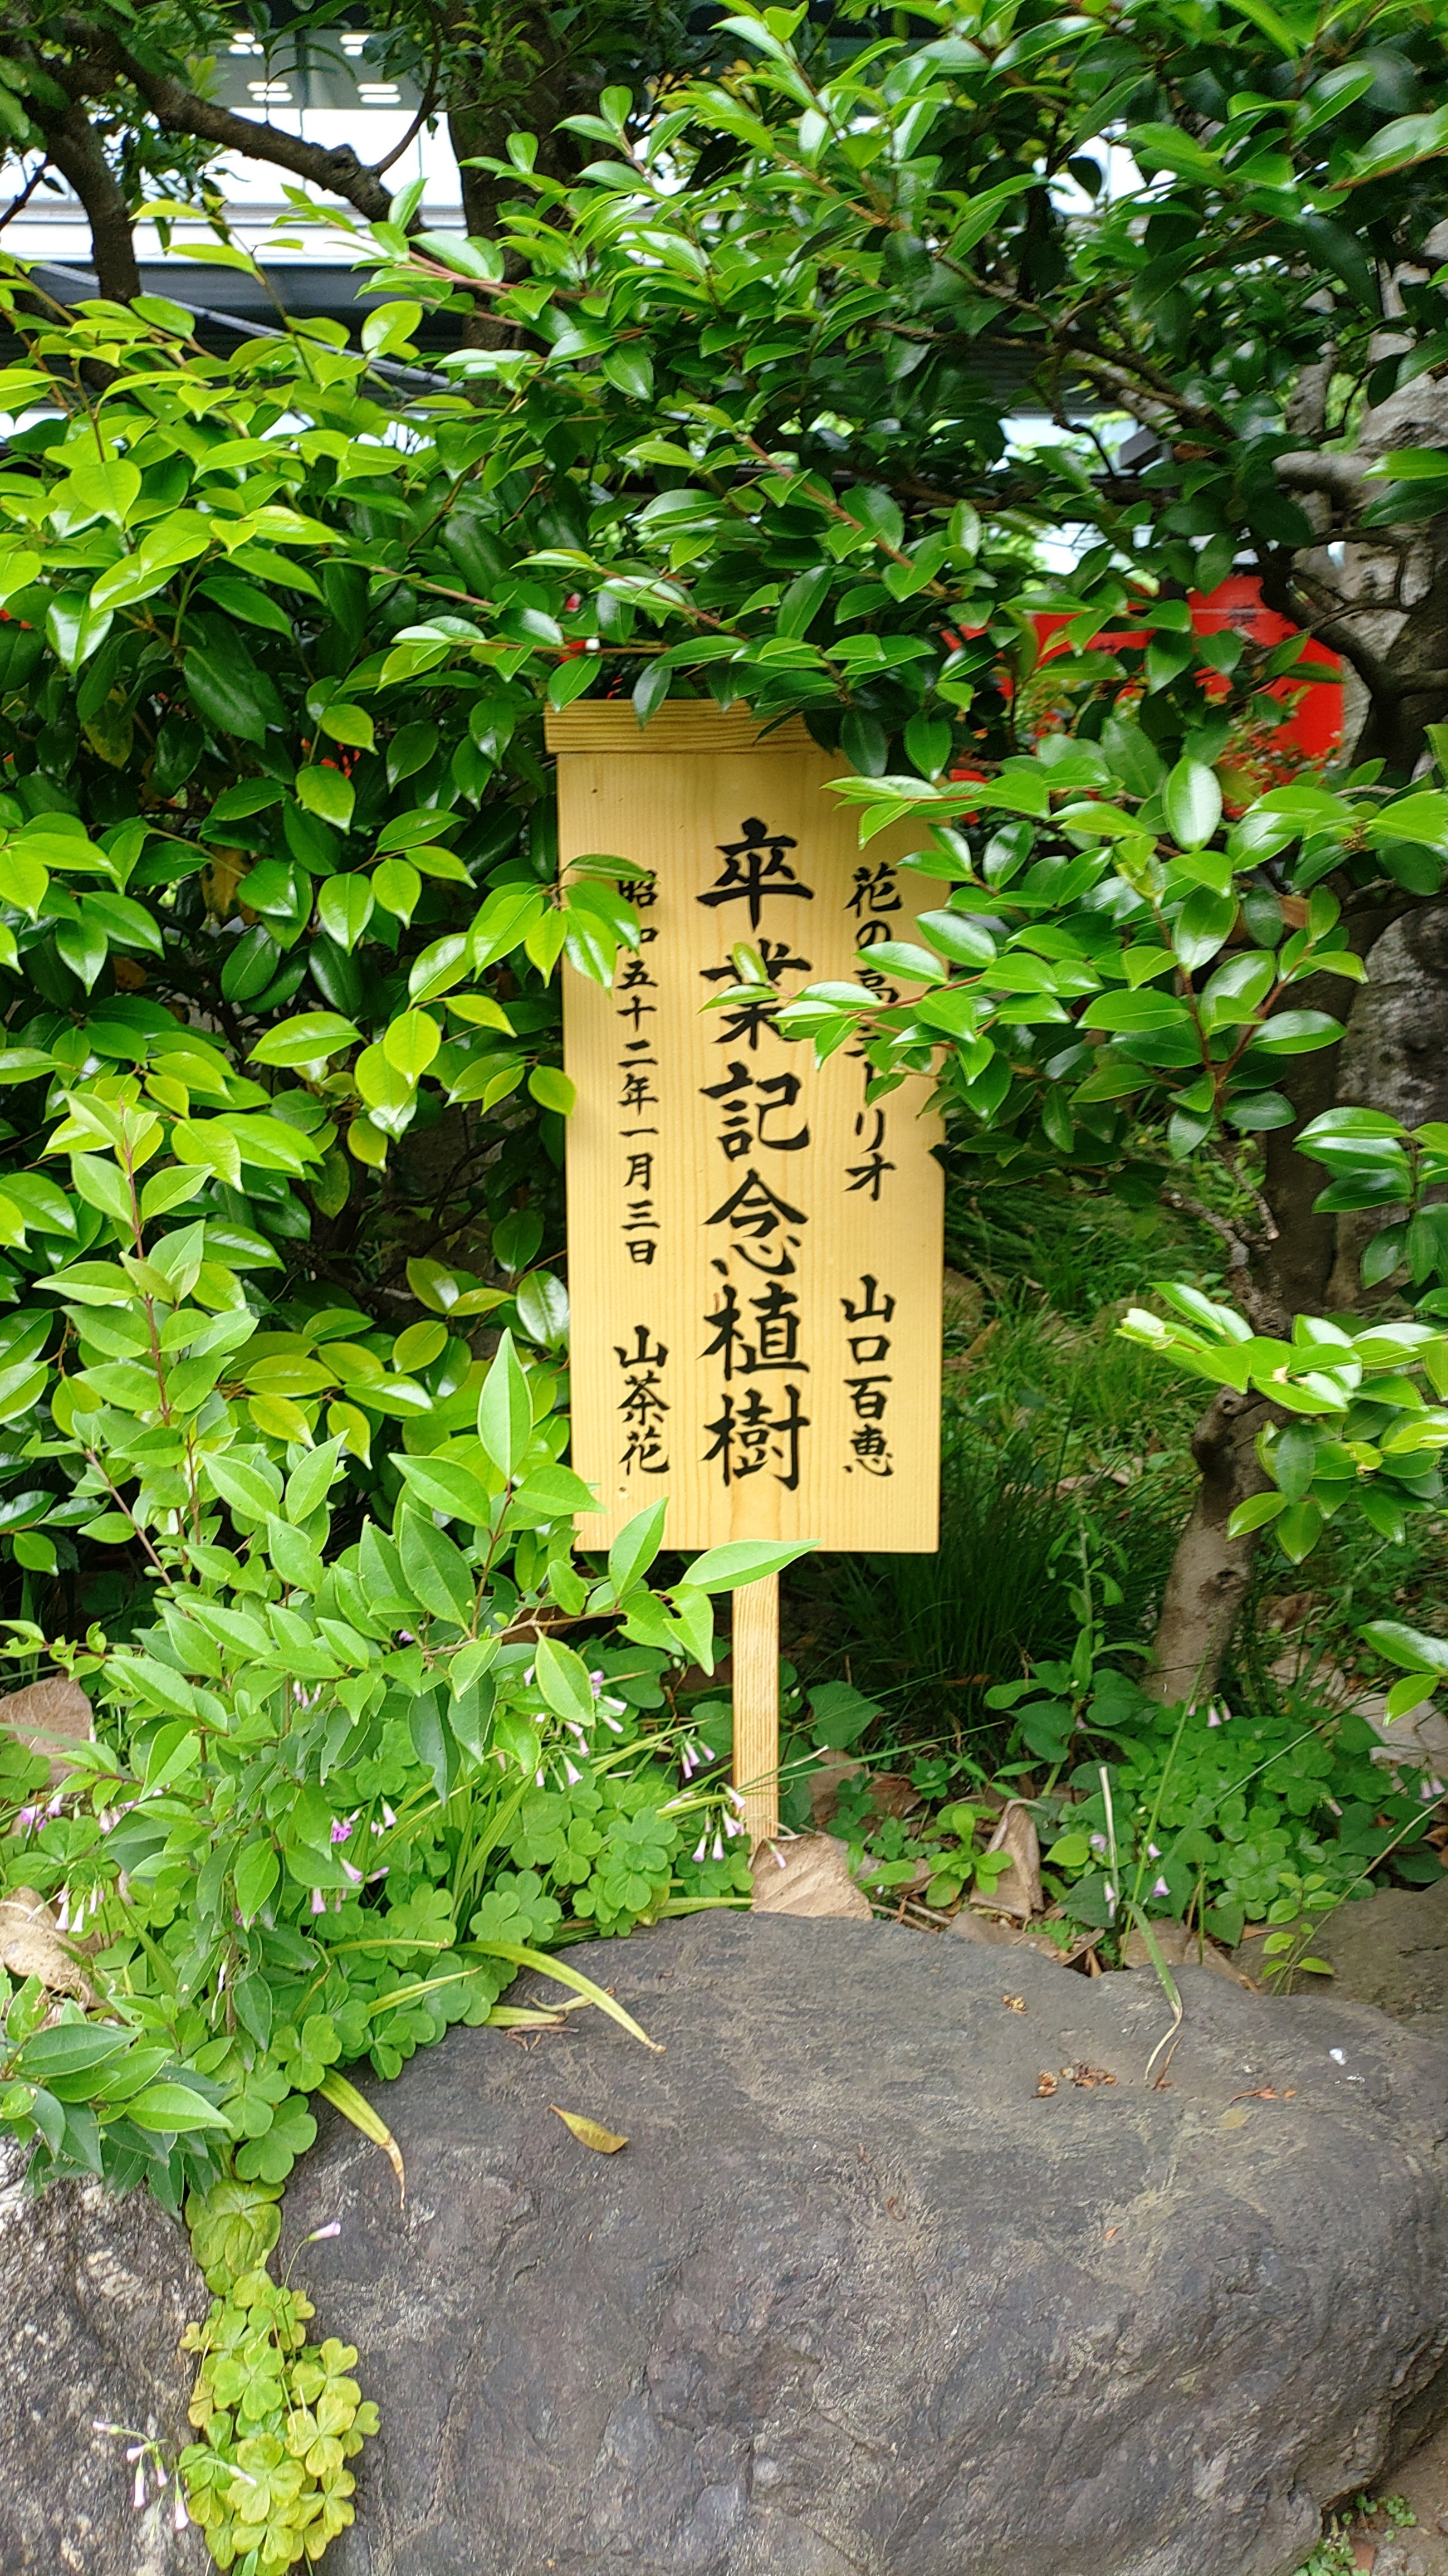 花の高三トリオ 山口百恵
卒業記念植樹
昭和五十二年一月三日 山茶花